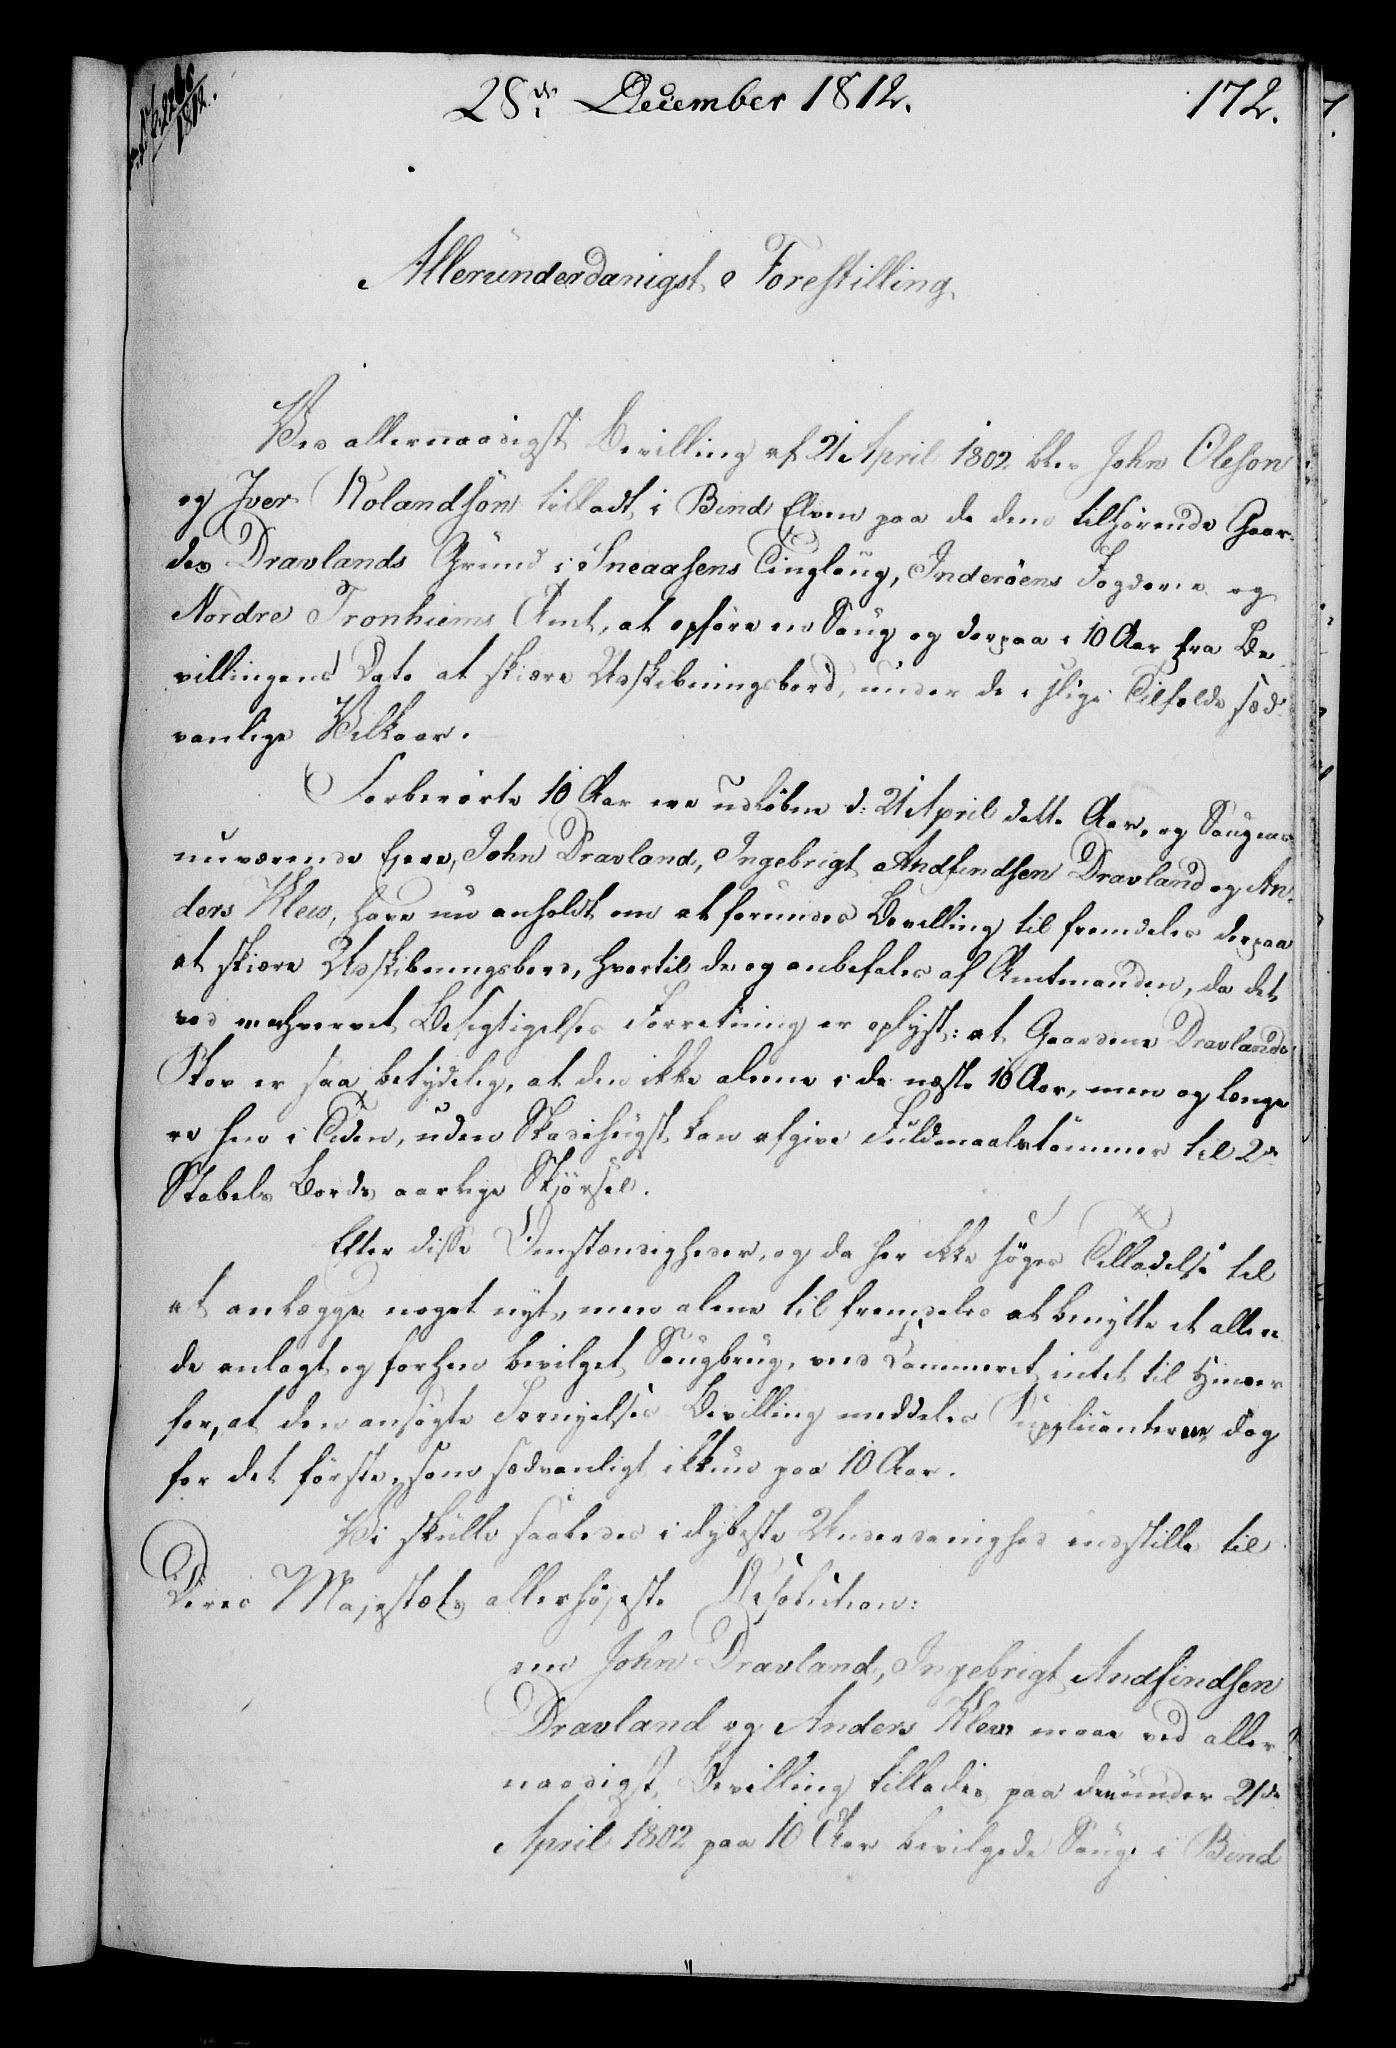 28de December 1812.
172.
1812.
Allerunderdanigst Forestilling
Ved allernaadigst Bevilling af 21 April 1802 blev John Oleson
og Iver Rolandsön tilladt, i Bind Elven paa de dem tilhörende Gaar-
des Dravlands Grund i Sneaasens Tinglaug, Inderöens Fogderie og
Nordre Tronhiems Amt, at opföre en Saug og derpaa i 10 Aar fra Be-
villingens Dato at skiære Udskibningsbord, under de i slige Tilfælde sæd-
vanlige Vilkaar.
Forberörte 10 Aar ere udlöbne d: 21 April dette Aar, og Saugens
nuværende Ejere, John Dravland, Ingebrigt Andfindsen Dravland og An-
ders Klew, have nu anholdt om at forundes Bevilling til fremdeles derpaa
at skiære Udskibningsbord, hvortil de og anbefales af Amtmanden, da det
ved erhvervet Besigtigelses Forretning er oplyst: at Gaardene Dravlands
Skov er saa betydelig, at den ikke alene i de næste 10 Aar, men og længe
re hen i Tiden, uden Skovhugst, kan afgive Fuldmaalstømmer til 2de
Stabels Bords aarlige Skjörsel.
Efter disse Omstændigheder, og da her ikke söges Tilladelse til
at anlægge noget nyt, men alene til fremdeles at benytte et allere
de anlagt og forhen bevilget Saugbrug, veed Kammeret intet til Hinder
for, at den ansögte Fornyelses Bevilling meddeles Supplicanterne, dog
for det förste, som sædvanligt ikkun paa 10 Aar.
Vi skulle saaledes i dybeste Underdanighed indstille til
Deres Majestæts allerhöjeste Resolution:
om John Dravland, Ingebrigt Andfindsen
Dravland og Anders Klew maae ved aller-
naadigst Bevilling tillades paa den under 21de
April 1802 paa 10 Aar bevilgede Saug i Bind